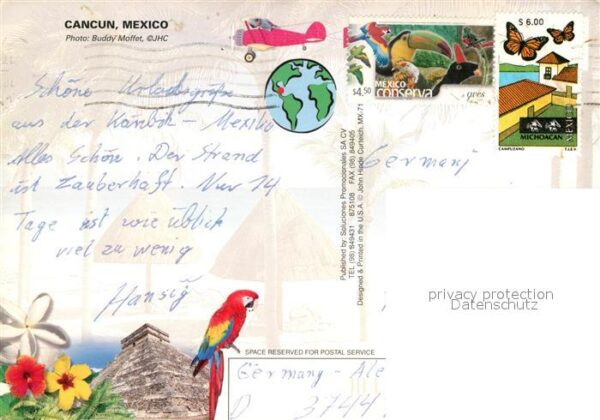 CANCUN, MEXICO
Photo: Buddy Moffet, ©JHC
Schöne Urlaubsgrüße
aus der Karibik - Mexiko
Alles Schön. Der Strand
ist Zauberhaft. Nur 14
Tage ist wie üblich
viel zu wenig
Hansig
$4,50
MEXICO
conserva
aves
$ 6.00
MICHOACAN
CAMPUZANO
T.I.E.V.
Germany
Published by: Soluciones Promocionales SA CV
TEL (98) 849431 875108 FAX (98) 849405
Designed & Printed in the U.S.A. © John Hinde Curteich, MX-71
privacy protection
Datenschutz
SPACE RESERVED FOR POSTAL SERVICE
Germany - Ale
D 3744